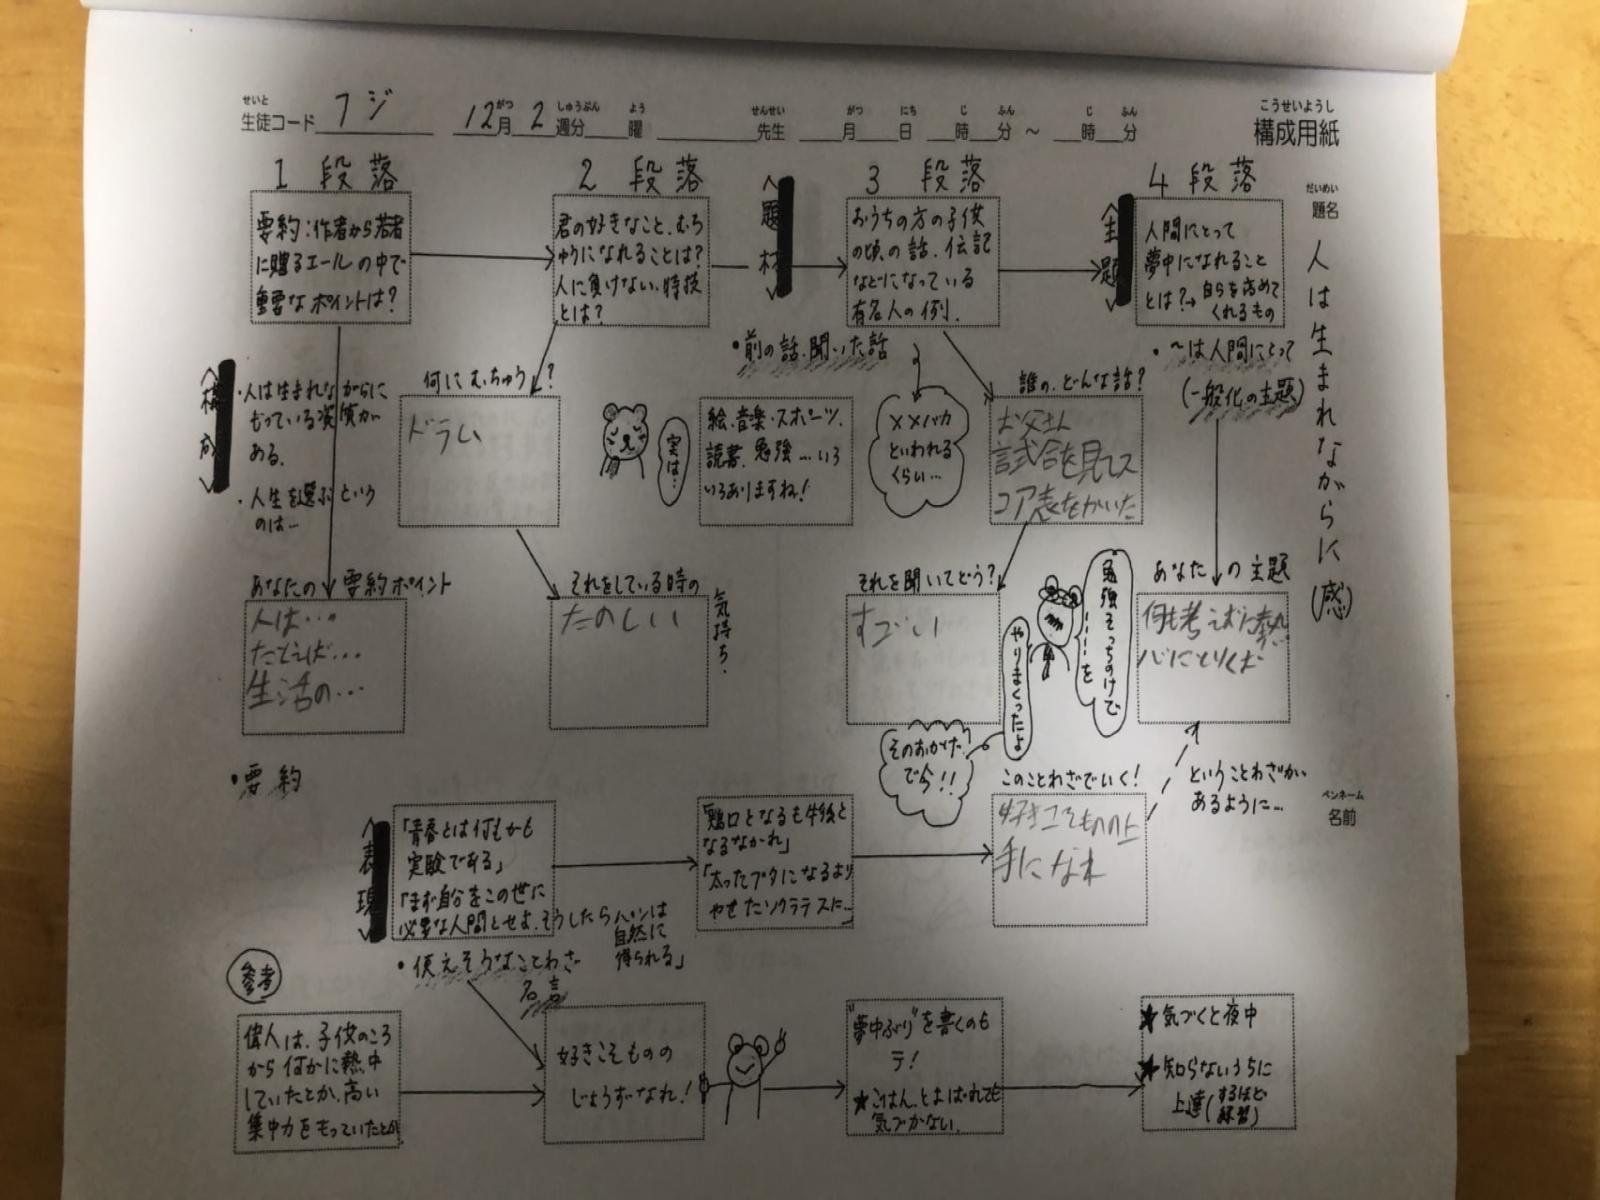 せいと
生徒コード フジ
12月 2 週分 曜
がつ しゅうぶん よう
せんせい
先生
がつ にち じ ふん じ ふん
月 日 時 分 ～ 時 分
こうせいようし
構成用紙
だいめい
題名
人は生まれながらに(感)
ペンネーム
名前
1 段落
要約:作者から若者
に贈るエールの中で
重要なポイントは?
2 段落
君の好きなこと、むち
ゅうになれることは?
人に負けない特技
とは?
〈題材〉
3 段落
おうちの方の子供
の頃の話、伝記
などになっている
有名人の例.
〈主題〉
4 段落
人間にとって
夢中になれること
とは?→自らを高めて
くれるもの
〈構成〉
・人は生まれながらに
もっている資質が
ある.
・人生を選ぶという
のは…
何にむちゅう?
ドラム
実は…
絵、音楽・スポーツ、
読書、勉強…いろ
いろありますね!
・前の話、聞いた話
××バカ
といわれる
くらい…
誰の、どんな話?
お父さん
試合を見てス
コア表をかいた
・～は人間にとって
(一般化の主題)
あなたの要約ポイント
人は…
たとえば…
生活の…
・要約
それをしている時の
気持ち.
たのしい
それを聞いてどう?
すごい
勉強そっちのけで
……を
やりまくったよ
そのおかげ
で今!!
あなたの主題
何も考えずに熱
心にとりくむ
このことわざでいく!
好きこそものの上
手になれ
ということわざが
あるように…
〈表現〉
「青春とは何もかも
実験である」
「まず自分をこの世に
必要な人間とせよ.そうしたらパンは
自然に
得られる」
・使えそうなことわざ
名言
「鶏口となるも牛後と
なるなかれ」
「太ったブタになるより
やせたソクラテスに…」
参考
偉人は、子供のころ
から何かに熱中
していたとか、高い
集中力をもっていたとか
好きこそものの
じょうずなれ!
"夢中ぶり"を書くのも
テ!
★ごはん、とよばれても
気づかない.
★気づくと夜中
★知らないうちに
上達(するほど
練習)